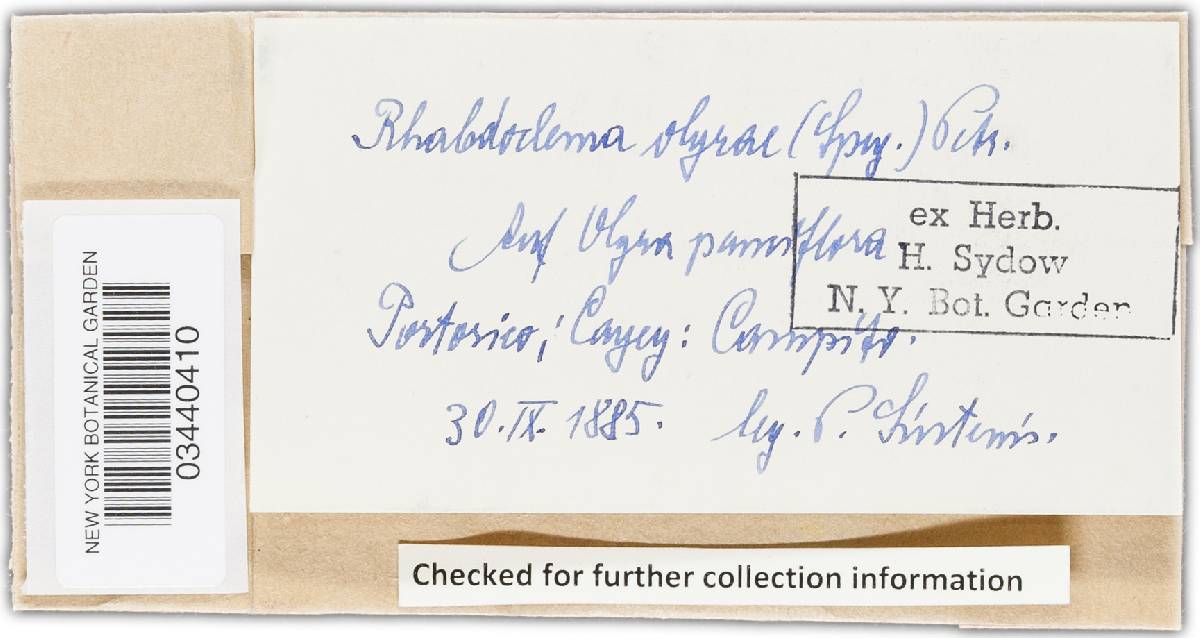 Rhabdodema olyrae (Speg.) Petr.
Auf Olyra pauciflora
Portorico; Cayey: Campito.
30.IX.1885. leg. P. Sintenis.
ex Herb.
H. Sydow
N. Y. Bot. Garden
NEW YORK BOTANICAL GARDEN
03440410
Checked for further collection information